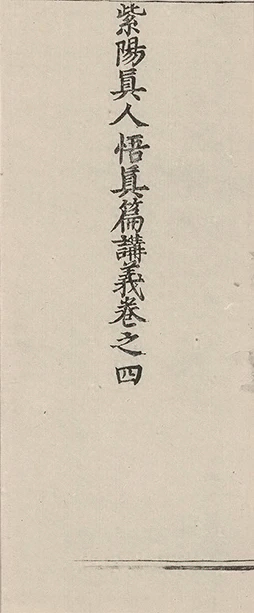 紫陽眞人悟眞篇講義卷之四